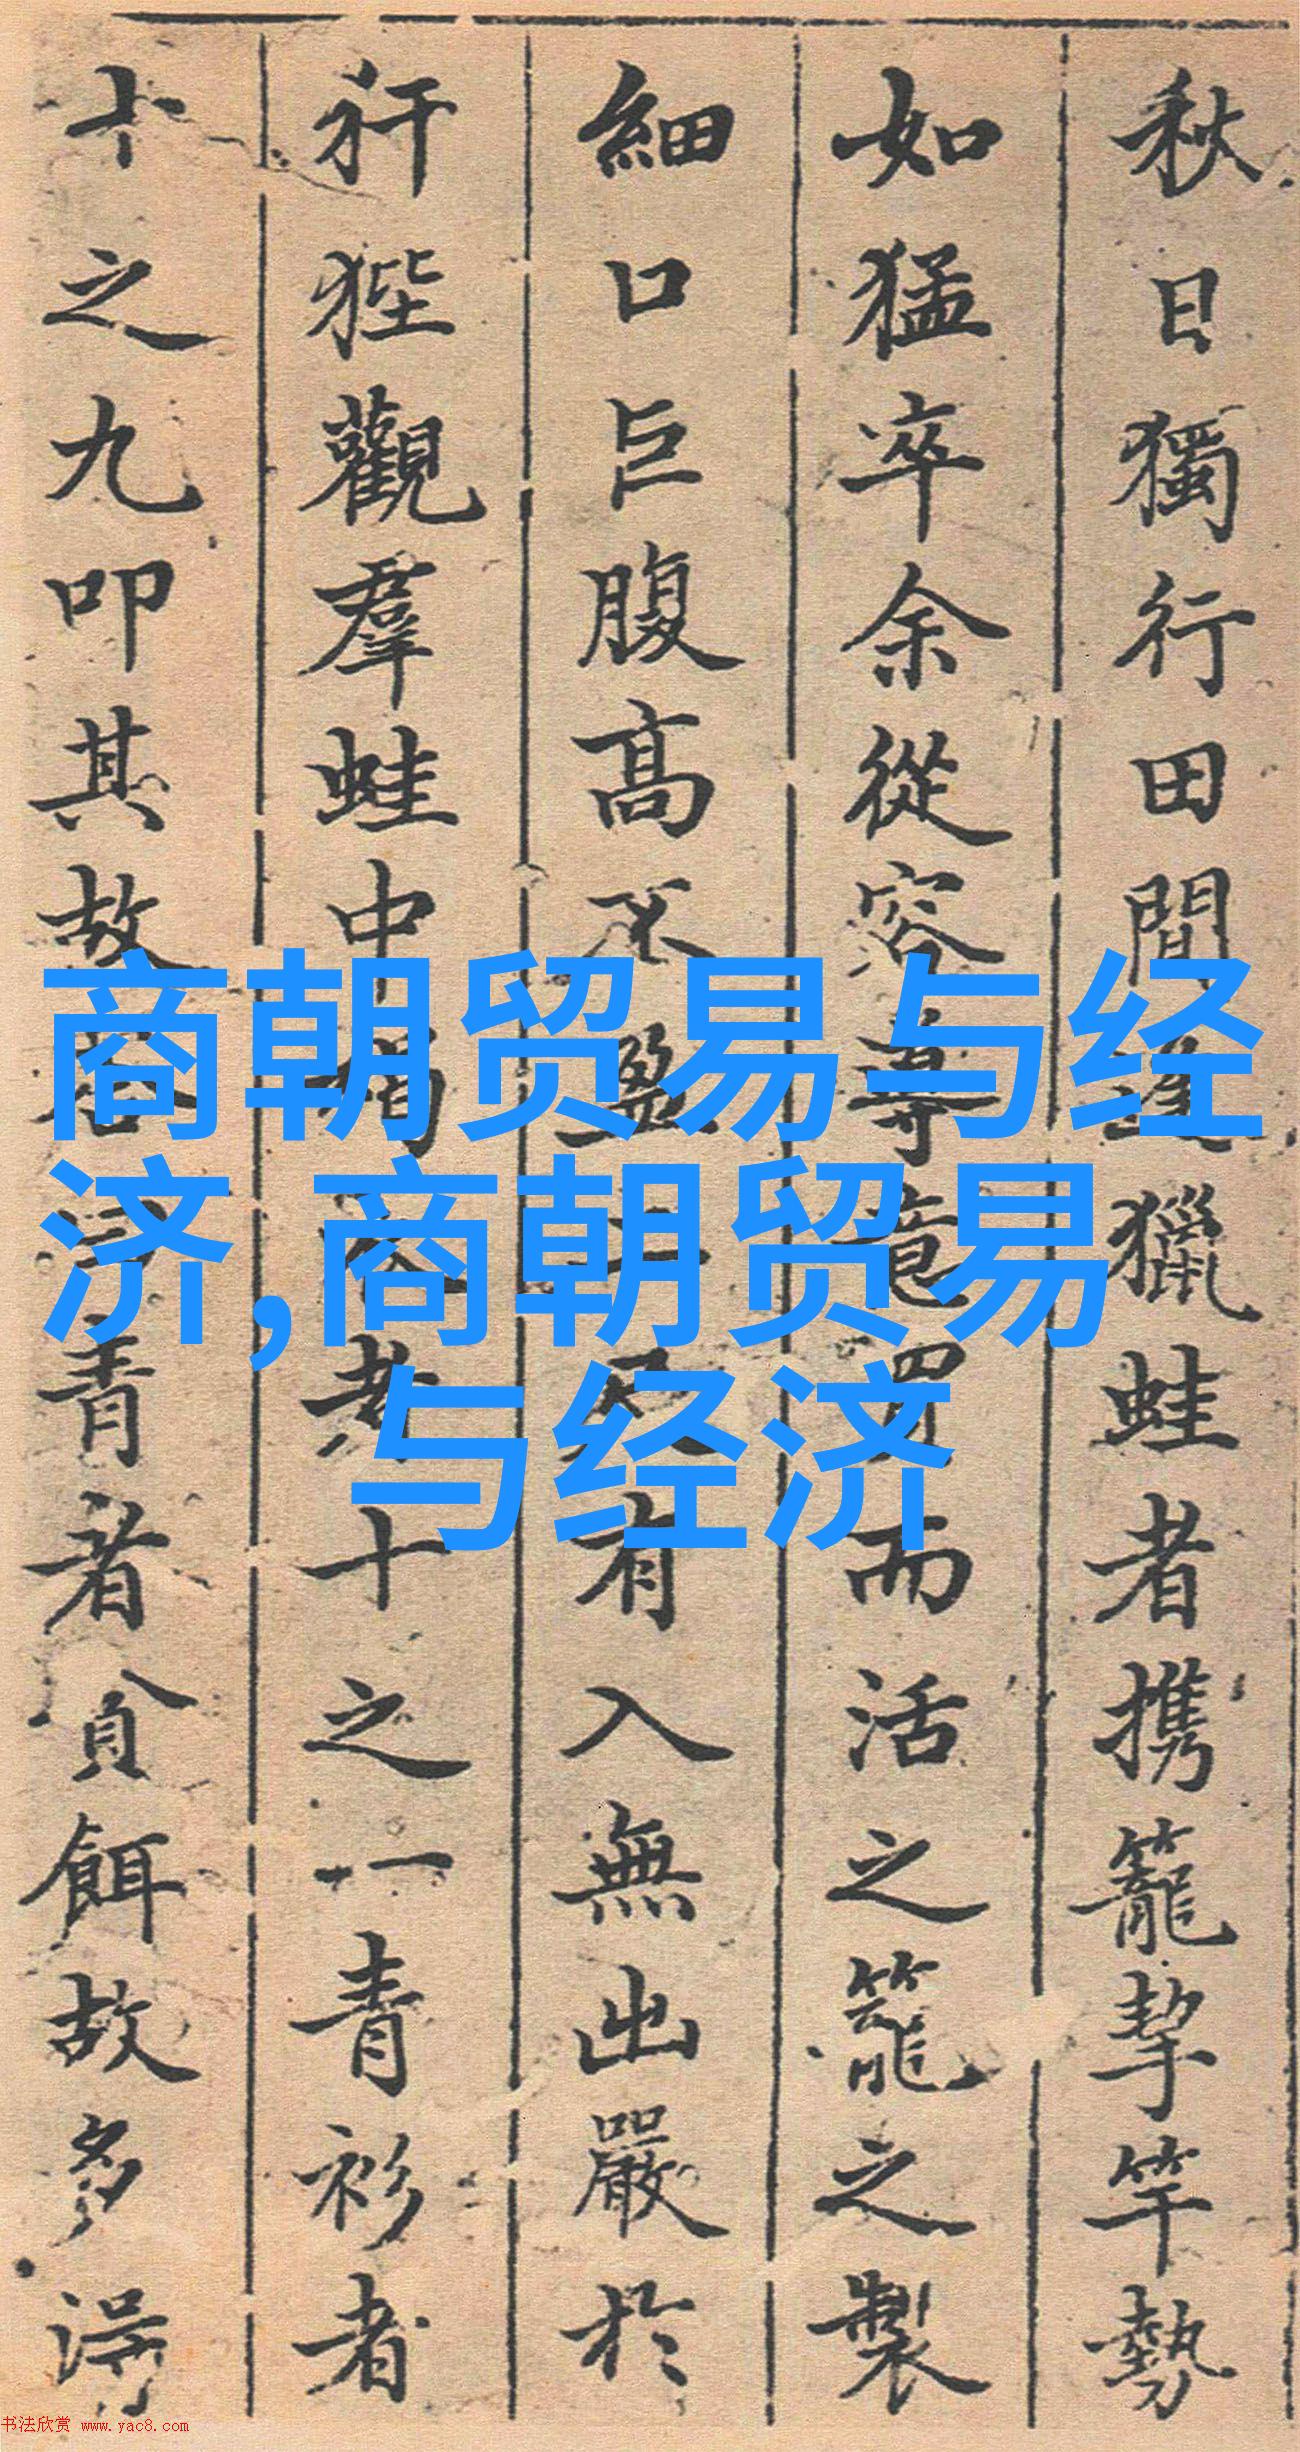 秋日獨行田間
獵蛙者携籠挈竿勢
如猛卒余從容
而活之籠之製
細口巨腹高不盈
有入無出嚴於
犴狴觀羣蛙中
十之一青衫者
十之九叩其故
青者貪餌故多得
商朝贸易与经
济,商朝贸易
与经济
书法欣赏 www.yac8.com